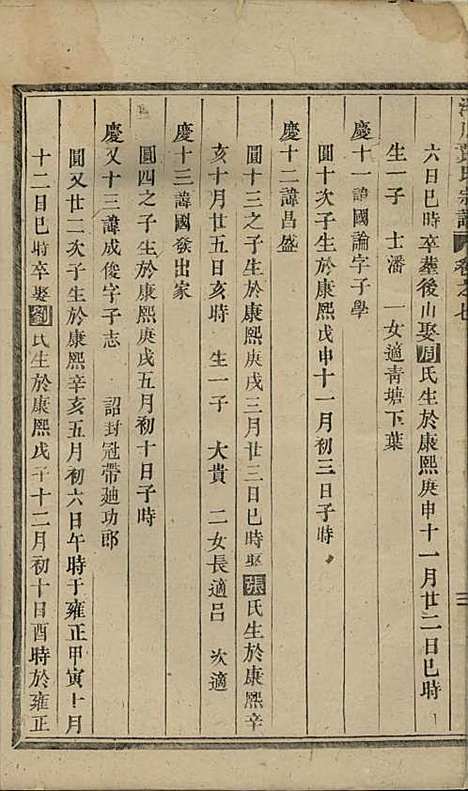 氏宗譜 卷之七
三
六日巳時卒塟後山娶周氏生於康熙庚申十一月廿二日巳時
生一子 士潘 一女適靑塘下葉
慶十一諱國論字子學
圓十次子生於康熙戊申十一月初三日子時
慶十二諱昌盛
圓十三之子生於康熙庚戌三月廿三日巳時娶張氏生於康熙辛
亥十月廿五日亥時 生一子 大貴 二女長適吕 次適
慶十三諱國發出家
圓四之子生於康熙庚戌五月初十日子時
慶又十三諱成俊字子志 詔封冠帶廸功郎
圓又廿二次子生於康熙辛亥五月初六日午時于雍正甲寅十月
十二日巳時卒娶劉氏生於康熙戊子十二月初十日酉時於雍正